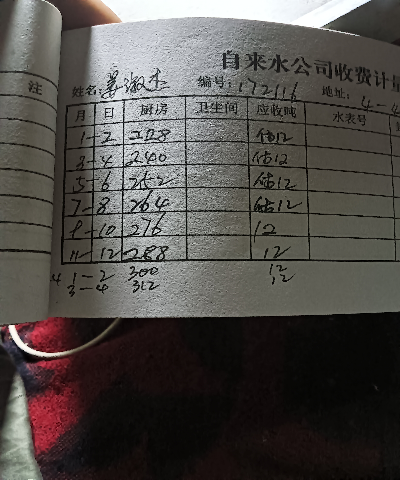 注
自来水公司收费计量
姓名: 姜淑杰 编号: 172116 地址: 4-4
月 日 厨房 卫生间 应收吨 水表号
1-2 228 估12
3-4 240 估12
5-6 252 估12
7-8 264 估12
9-10 276 12
11-12 288 12
1-2 300 12
3-4 312 12